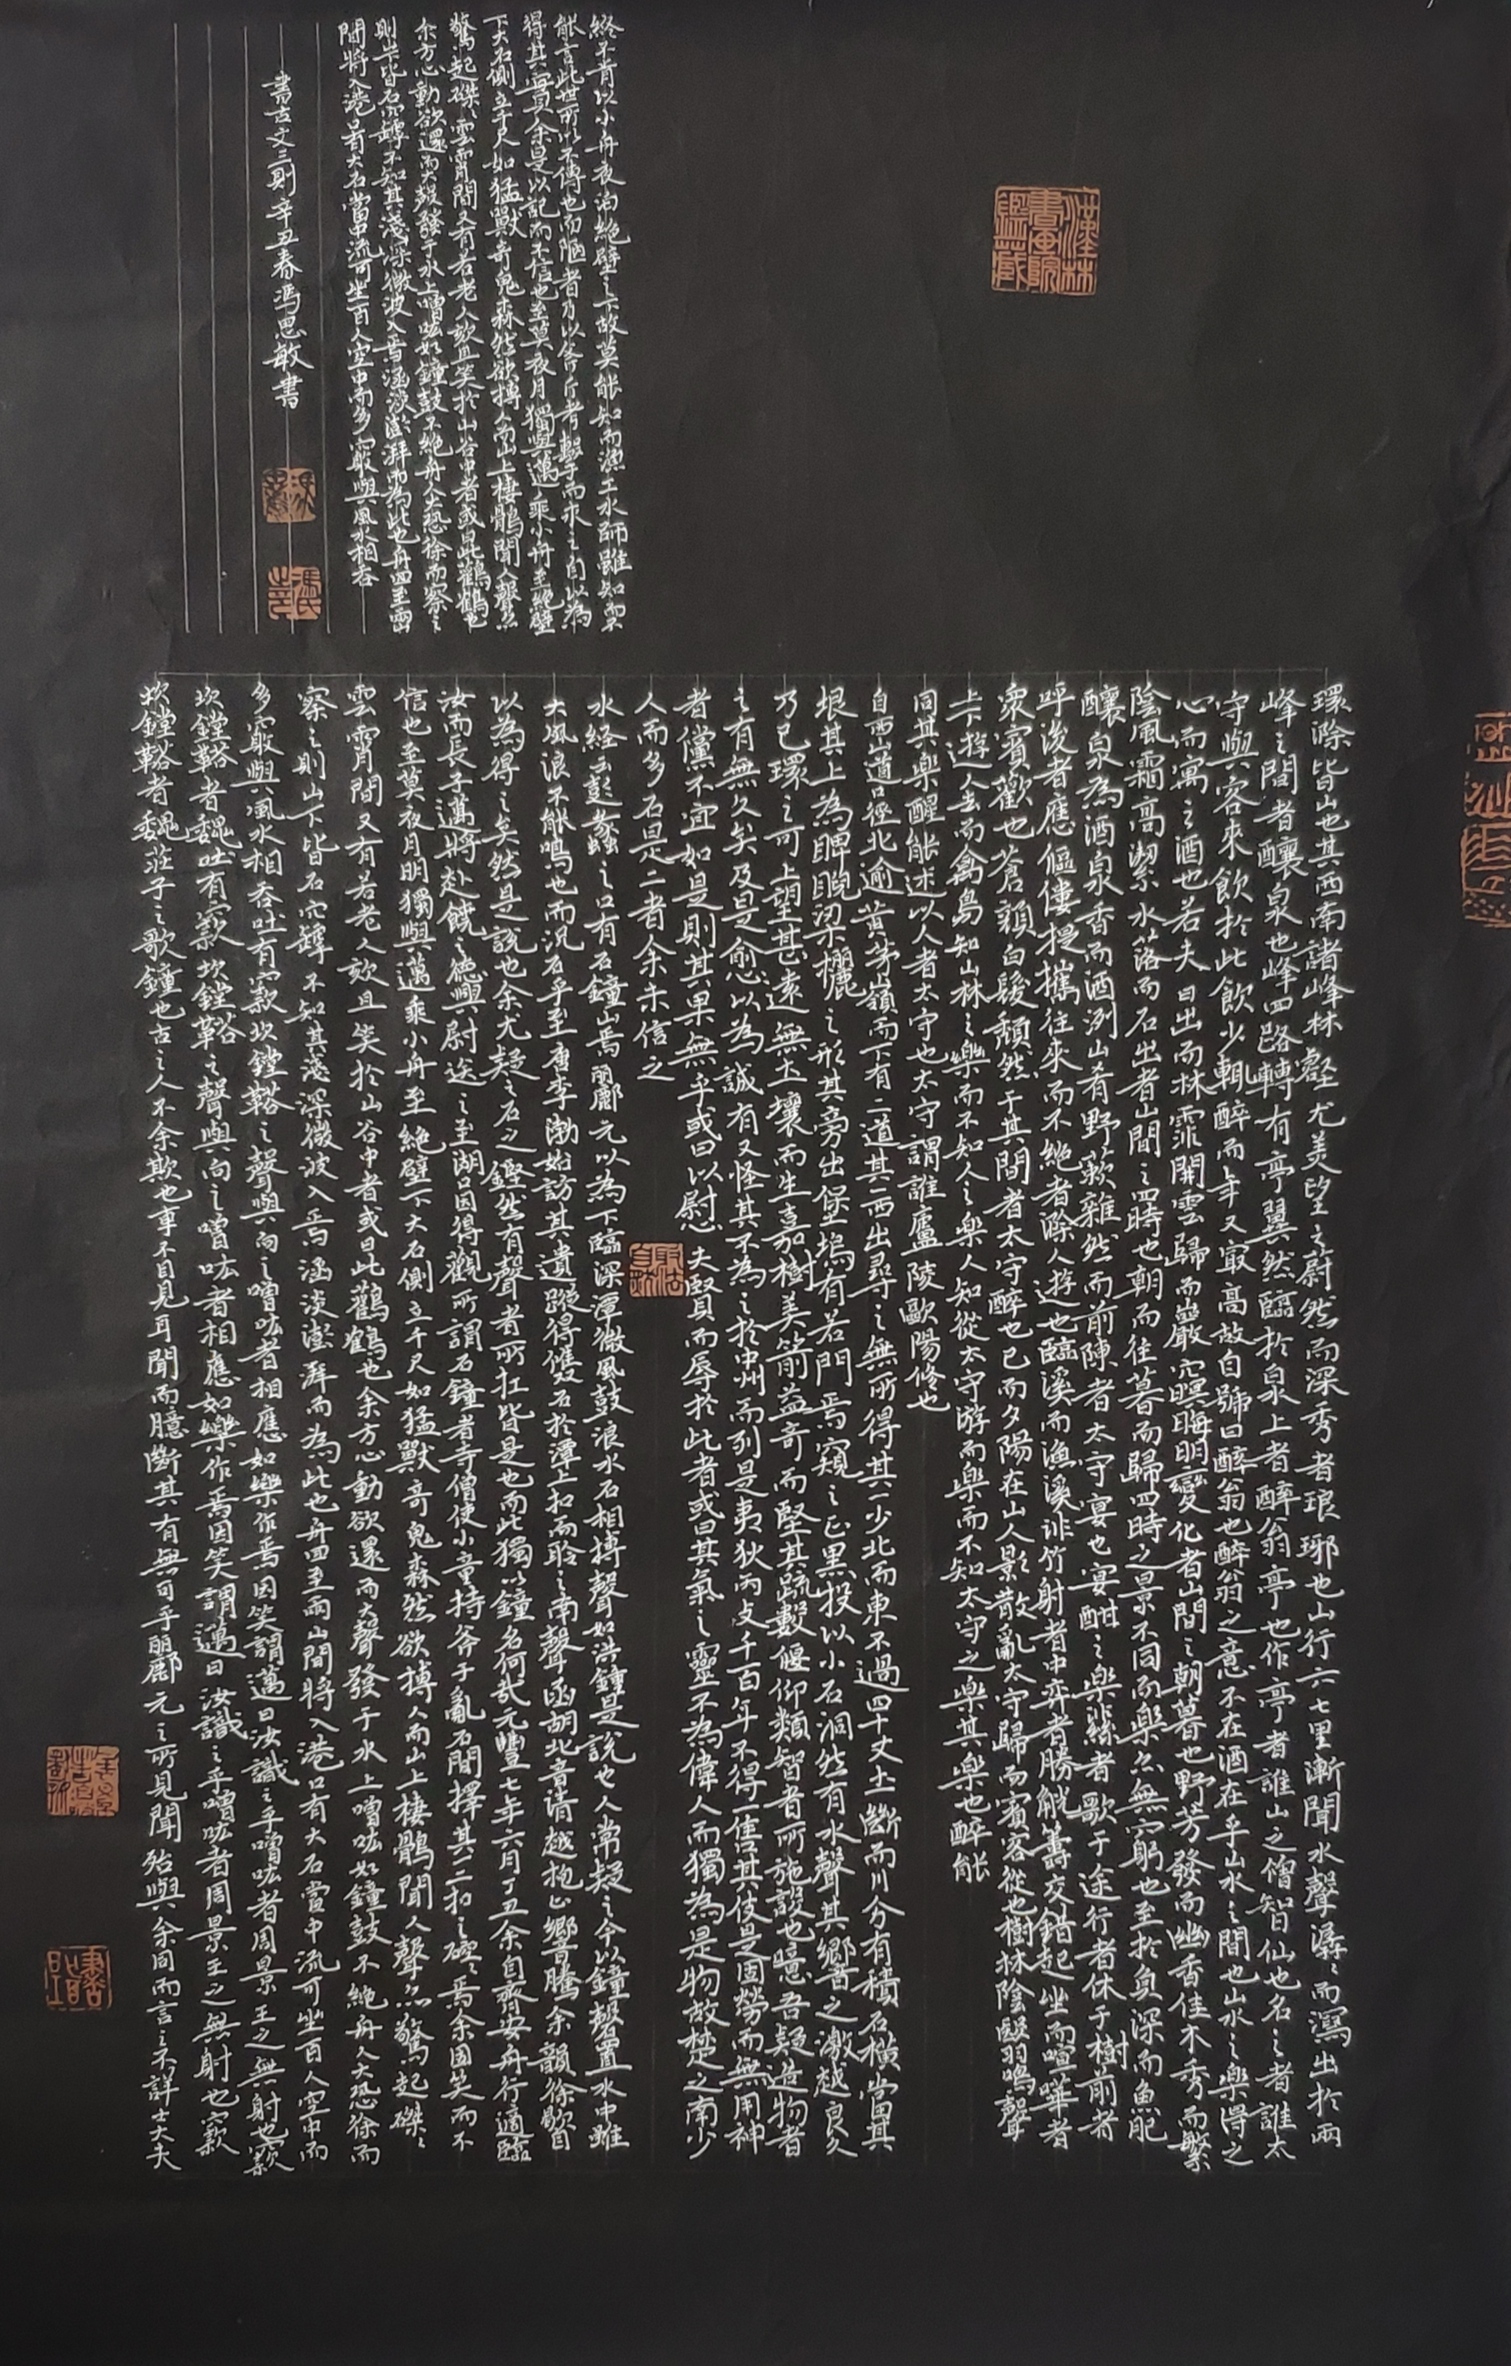 環滁皆山也其西南諸峰林壑尤美望之蔚然而深秀者琅琊也山行六七里漸聞水聲潺〻而瀉出於兩
峰之間者釀泉也峰回路轉有亭翼然臨於泉上者醉翁亭也作亭者誰山之僧智仙也名之者誰太
守與客來飲於此飲少輒醉而年又最高故自號曰醉翁也醉翁之意不在酒在乎山水之間也山水之樂得之
心而寓之酒也若夫日出而林霏開雲歸而巖穴暝晦明變化者山間之朝暮也野芳發而幽香佳木秀而繁
陰風霜高潔水落而石出者山間之四時也朝而往暮而歸四時之景不同而樂亦無窮也至於負
深而魚肥
釀泉為酒泉香而酒洌山肴野蔌雜然而前陳者太守宴也宴酣之樂
者歌于途行者休于樹前者
呼後者應傴僂提攜往來而不絶者滁人遊也臨溪而漁溪
非竹射者中弈者勝觥籌交錯起坐而喧嘩者
衆賓歡也蒼顔白髮頹然于其間者太守醉也已而夕陽在山人影散亂太守歸而賓客從也樹林陰翳鳴聲
上下遊人去而禽鳥知山林之樂而不知人之樂人知從太守游而樂而不知太守之樂其樂也醉能
同其樂醒能述以人者太守也太守謂誰廬陵歐陽修也
自西山道口徑北逾黄茅嶺而下有二道其一西出尋之無所得其一少北而東不過四十丈土斷而川分有積石橫當其
垠其上為睥睨梁欐之形其旁出堡塢有若門焉窺之正黑投以小石洞然有水聲其響之激越良久
乃已環之可上望甚遠無土壤而生嘉樹美箭益奇而堅其疏數偃仰類智者所施設也噫吾疑造物者
之有無久矣及是愈以為誠有又怪其不為之於中州而列是夷狄
千百年不得一售其伎是固勞而無用神
者儻不宜如是則其果無乎或曰以慰夫賢而辱於此者或曰其氣之靈不為偉人而獨為是物故楚之南少
人而多石是二者余未信之
水經云彭蠡之口有石鐘山焉酈元以為下臨深潭微風鼓浪水石相搏聲如洪鐘是說也人常疑之今以鐘磬置水中雖
大風浪不能鳴也而況石乎至唐李渤始訪其遺蹤得雙石於潭上扣而聆之南聲函胡北音清越枹止響騰余韻徐歇自
以為得之矣然是說也余尤疑之石之鏗然有聲者所在皆是也而此獨以鐘名何哉元豐七年六月丁丑余自齊安舟行適臨
汝而長子邁將赴饒之德興尉送之至湖口因得觀所謂石鐘者寺僧使小童持斧于亂石間擇其一二扣之硿〻焉余固笑而不
信也至莫夜月明獨與邁乘小舟至絶壁下大石側立千尺如猛獸奇鬼森然欲搏人而山上棲鶻聞人聲亦驚起磔〻
雲霄間又有若老人欬且笑於山谷中者或曰此鸛鶴也余方心動欲還而大聲發于水上噌吰如鐘鼓不絶舟人大恐徐而
察之則山下皆石穴罅不知其淺深微波入焉涵淡澎湃而為此也舟回至兩山間將入港口有大石當中流可坐百人空中而
多竅與風水相吞吐有窾坎鏜鞳之聲與向之噌吰者相應如樂作焉因笑謂邁曰汝識之乎噌吰者周景王之無射也窾
坎鏜鞳者魏吐有窾坎鏜鞳之聲與向之噌吰者相應如樂作焉因笑謂邁曰汝識之乎噌吰者周景王之無射也窾
坎鏜鞳者魏莊子之歌鐘也古之人不余欺也事不目見耳聞而臆斷其有無可乎酈元之所見聞殆與余同而言之不詳士大夫
終不肯以小舟夜泊絶壁之下故莫能知而漁工水師雖知而不
能言此世所以不傳也而陋者乃以斧斤考擊而求之自以為
得其實余是以記
至莫夜月獨與邁乘小舟至絶壁
下大石側立千尺如猛獸奇鬼森然欲搏人而山上棲鶻聞人聲亦
驚起磔〻雲霄間又有若老人欬且笑於山谷中者或曰此鸛鶴也
余方心動欲還而大聲發于水上噌吰如鐘鼓不絶舟人大恐徐而察之
則山下皆石穴罅不知其淺深微波入焉涵淡澎湃而為此也舟回至兩山
間將入港口有大石當中流可坐百人空中而多竅與風水相吞
書古文三則辛丑春馮思敏書
漢林書画院鑑藏